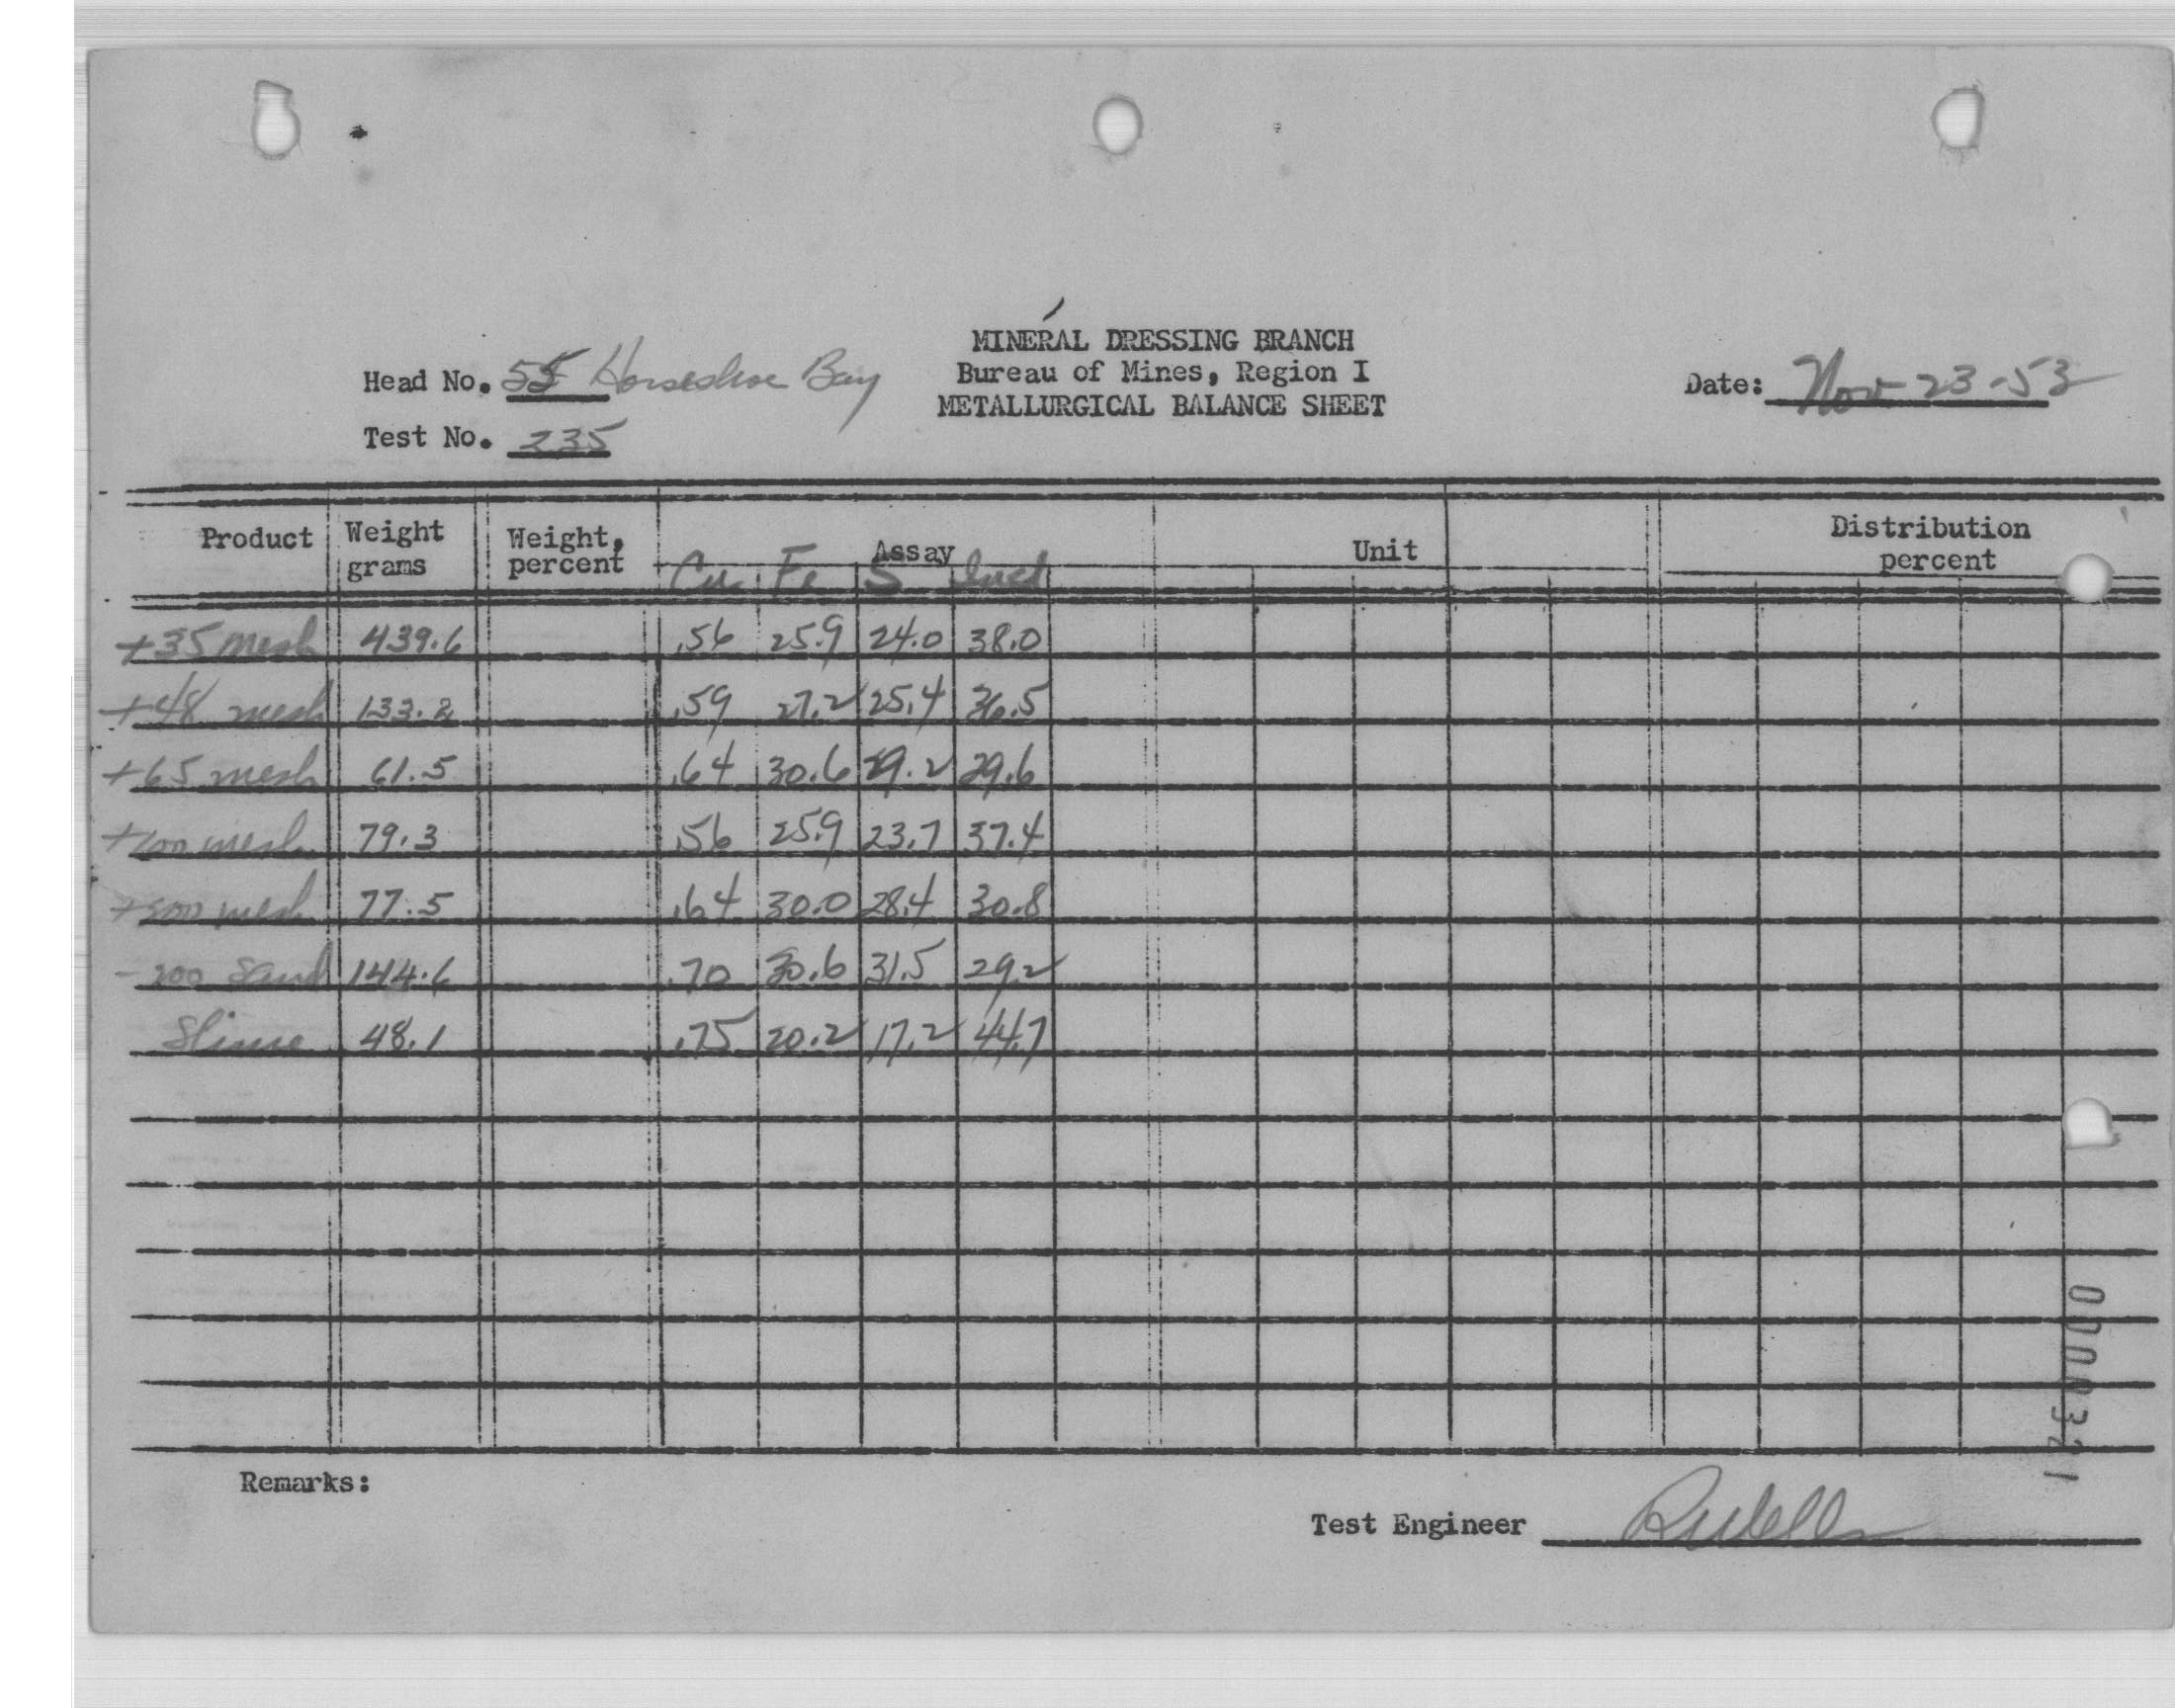 MINERAL DRESSING BRANCH
Head No. 55 Horseshoe Bay
Bureau of Mines, Region I
Date: Nov-23-53
METALLURGICAL BALANCE SHEET
Test No. 235
Product Weight grams Weight, percent Assay Unit Distribution percent
Cu Fe S Insol
+35 mesh 439.6 .56 25.9 24.0 38.0
+48 mesh 133.2 .59 27.2 25.4 36.5
+65 mesh 61.5 .64 30.6 29.2 29.6
+100 mesh 79.3 .56 25.9 23.7 37.4
+200 mesh 77.5 .64 30.0 28.4 30.8
-200 Sand 144.6 .70 30.6 31.5 29.2
Slime 48.1 .75 20.2 17.2 44.7
Remarks:
Test Engineer
0000321